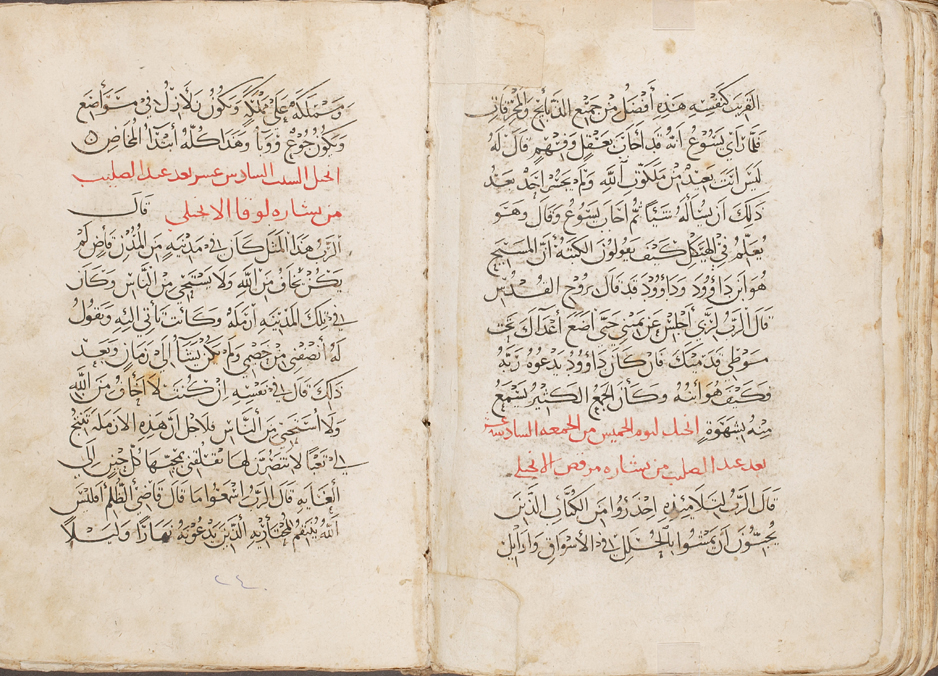 القريب كنفسه هذه أفضل من جميع الذبايح والمحرقات
فلما رأي يسوع انه قد اجاب بعقل وفهم قال له
ليس انت بعيد من ملكوت الله ولم يجسر احد بعد
ذلك ان يسأله شيأ ثم اجاب يسوع وقال وهو
يعلم في الهيكل كيف يقولون الكتبه أن المسيح
هو ابن داوود وداوود قد قال بروح القدس
قال الرب لربي اجلس عن يميني حتى اضع أعداك تحت
موطى قدميك فان كان داوود يدعوه ربه
فكيف هو أبنه وكان الجمع الكثير يسمع
منه بشهوة انجيل ليوم الخميس من الجمعه السادسه عشر
بعد عيد الصليب من بشاره مرقص الانجيلي
قال الرب لتلاميذه احذروا من الكتاب الذين
يحبون أن يمشوا بالحلل في الأسواق واوايل
ومملكة على مملكة وتكون زلازل في مواضع
وتكون جوع ووبأ وهذا كله أبتدا المخاض
انجيل السبت السادس عشر بعد عيد الصليب
من بشاره لوقا الانجيلي قال
الرب هذا المثل كان في مدينه من المدن قاض لم
يكن يخاف من الله ولا يستحي من الناس وكان
في تلك المدينه أرمله وكانت تأتي اليه وتقول
له أنصفني من خصمي ولم يكن يشأ الى زمان وبعد
ذلك قال في نفسه ان كنت لا اخاف من الله
ولا أستحي من الناس فلاجل أن هذه الارمله تتيح
في تعبا لانتصرن لها ليلا تقلقني بمجيها كل حين الى
الغايه قال الرب اسمعوا ما قال قاضي الظلم افليس
الله ينتقم لمختاريه الذين يدعو به نهارا وليلا
٢٤